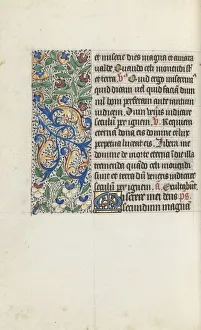 et miserie dies magna et amara
valde. Quando celi movendi sunt
et terra. v. Quid ergo miserrim
quid dicam vel quid faciam dum
nil boni perferam ante tantum
iudicem. Dum veneris iudicare
seculum per ignem. v. Requiem
eternam dona eis domine et lux
perpetua luceat eis. Libera me
domine de morte eterna in die illa
tremenda quando celi movendi
sunt et terra dum veneris iudicare
seculum per ignem. a. Exultabunt.
Miserere mei deus ps.
secundum magnam